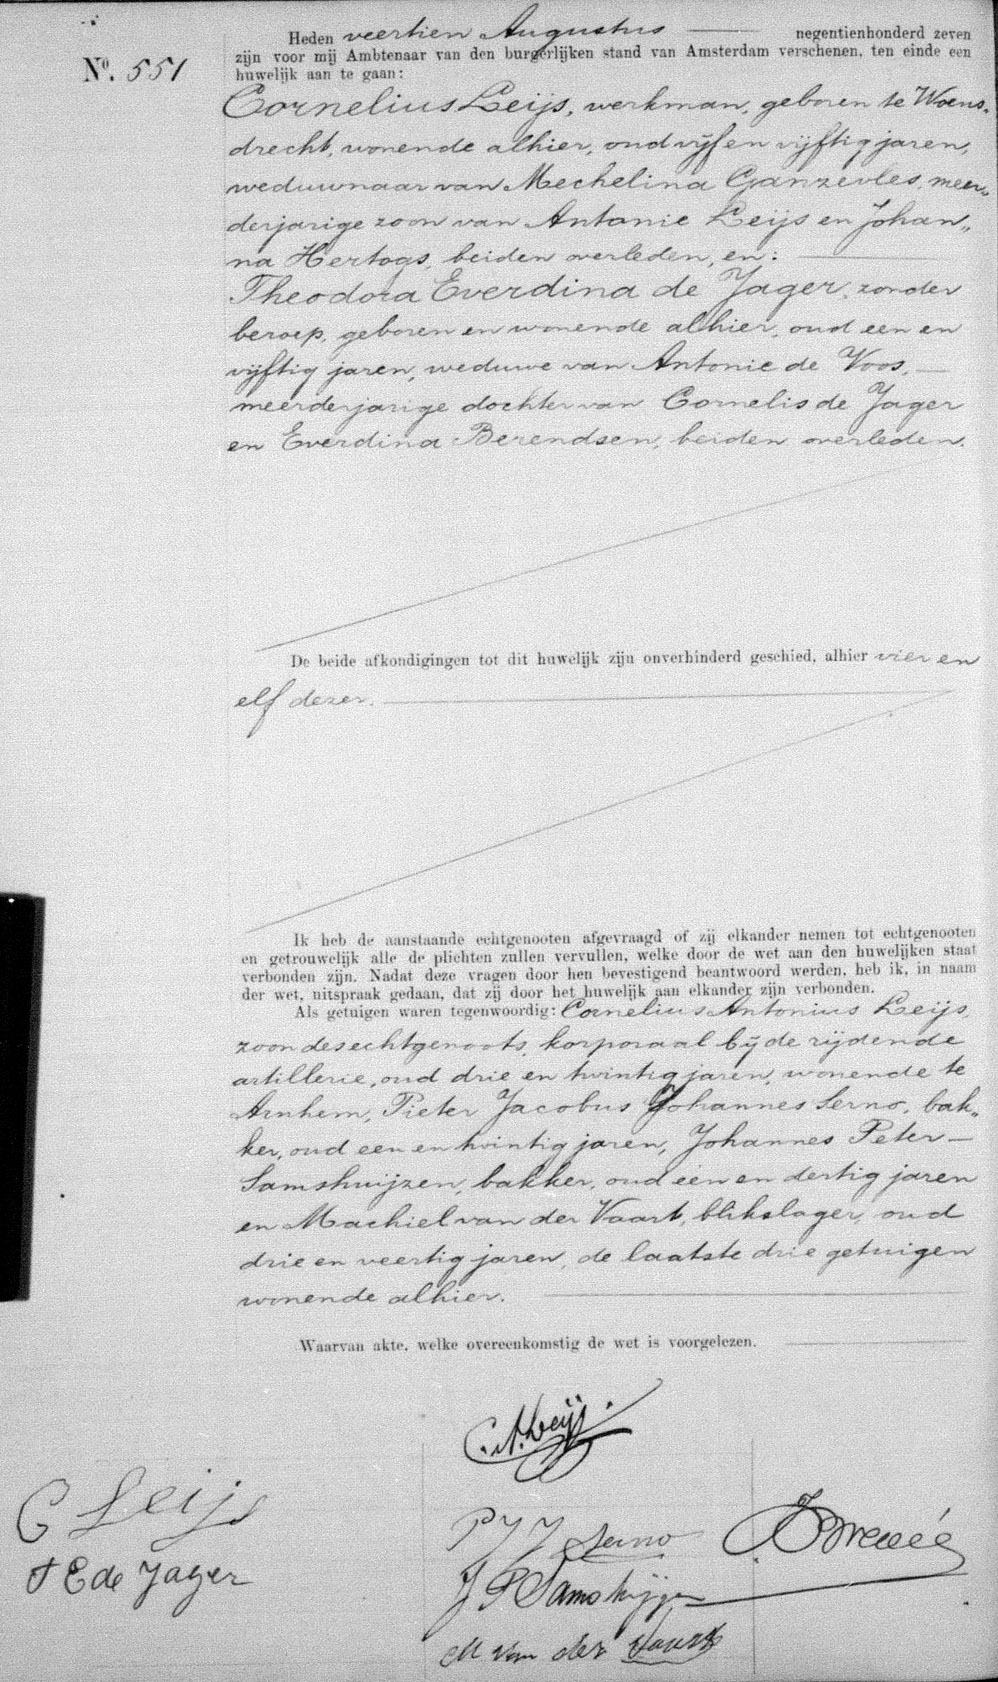 Heden veertien Augustus negentienhonderd zeven
zijn voor mij Ambtenaar van den burgerlijken stand van Amsterdam verschenen, ten einde een
No. 551
huwelijk aan te gaan:
Cornelius Leijs, werkman, geboren te Woens„
drecht, wonende alhier, oud vijf en vijftig jaren,
weduwnaar van Mechelina Ganzevles, meer„
derjarige zoon van Antonie Leijs en Johan„
na Hertogs, beiden overleden, en:
Theodora Everdina de Jager, zonder
beroep, geboren en wonende alhier, oud een en
vijftig jaren, weduwe van Antonie de Voos,
meerderjarige dochter van Cornelis de Jager
en Everdina Berendsen, beiden overleden.
De beide afkondigingen tot dit huwelijk zijn onverhinderd geschied, alhier vier en
elf dezer.
Ik heb de aanstaande echtgenooten afgevraagd of zij elkander nemen tot echtgenooten
en getrouwelijk alle de plichten zullen vervullen, welke door de wet aan den huwelijken staat
verbonden zijn. Nadat deze vragen door hen bevestigend beantwoord werden, heb ik, in naam
der wet, uitspraak gedaan, dat zij door het huwelijk aan elkander zijn verbonden.
Als getuigen waren tegenwoordig: Cornelius Antonius Leijs,
zoon des echtgenoots, korporaal bij de rijdende
artillerie, oud drie en twintig jaren, wonende te
Arnhem, Pieter Jacobus Johannes Serno, bak„
ker, oud een en twintig jaren, Johannes Peter
Samshuijzen, bakker, oud een en dertig jaren
en Machiel van der Vaart, blikslager, oud
drie en veertig jaren, de laatste drie getuigen
wonende alhier.
Waarvan akte, welke overeenkomstig de wet is voorgelezen.
C. A. Leijs.
C Leijs
P J J Serno
T E de Jager
J P Samshuijzen
M van der Vaart